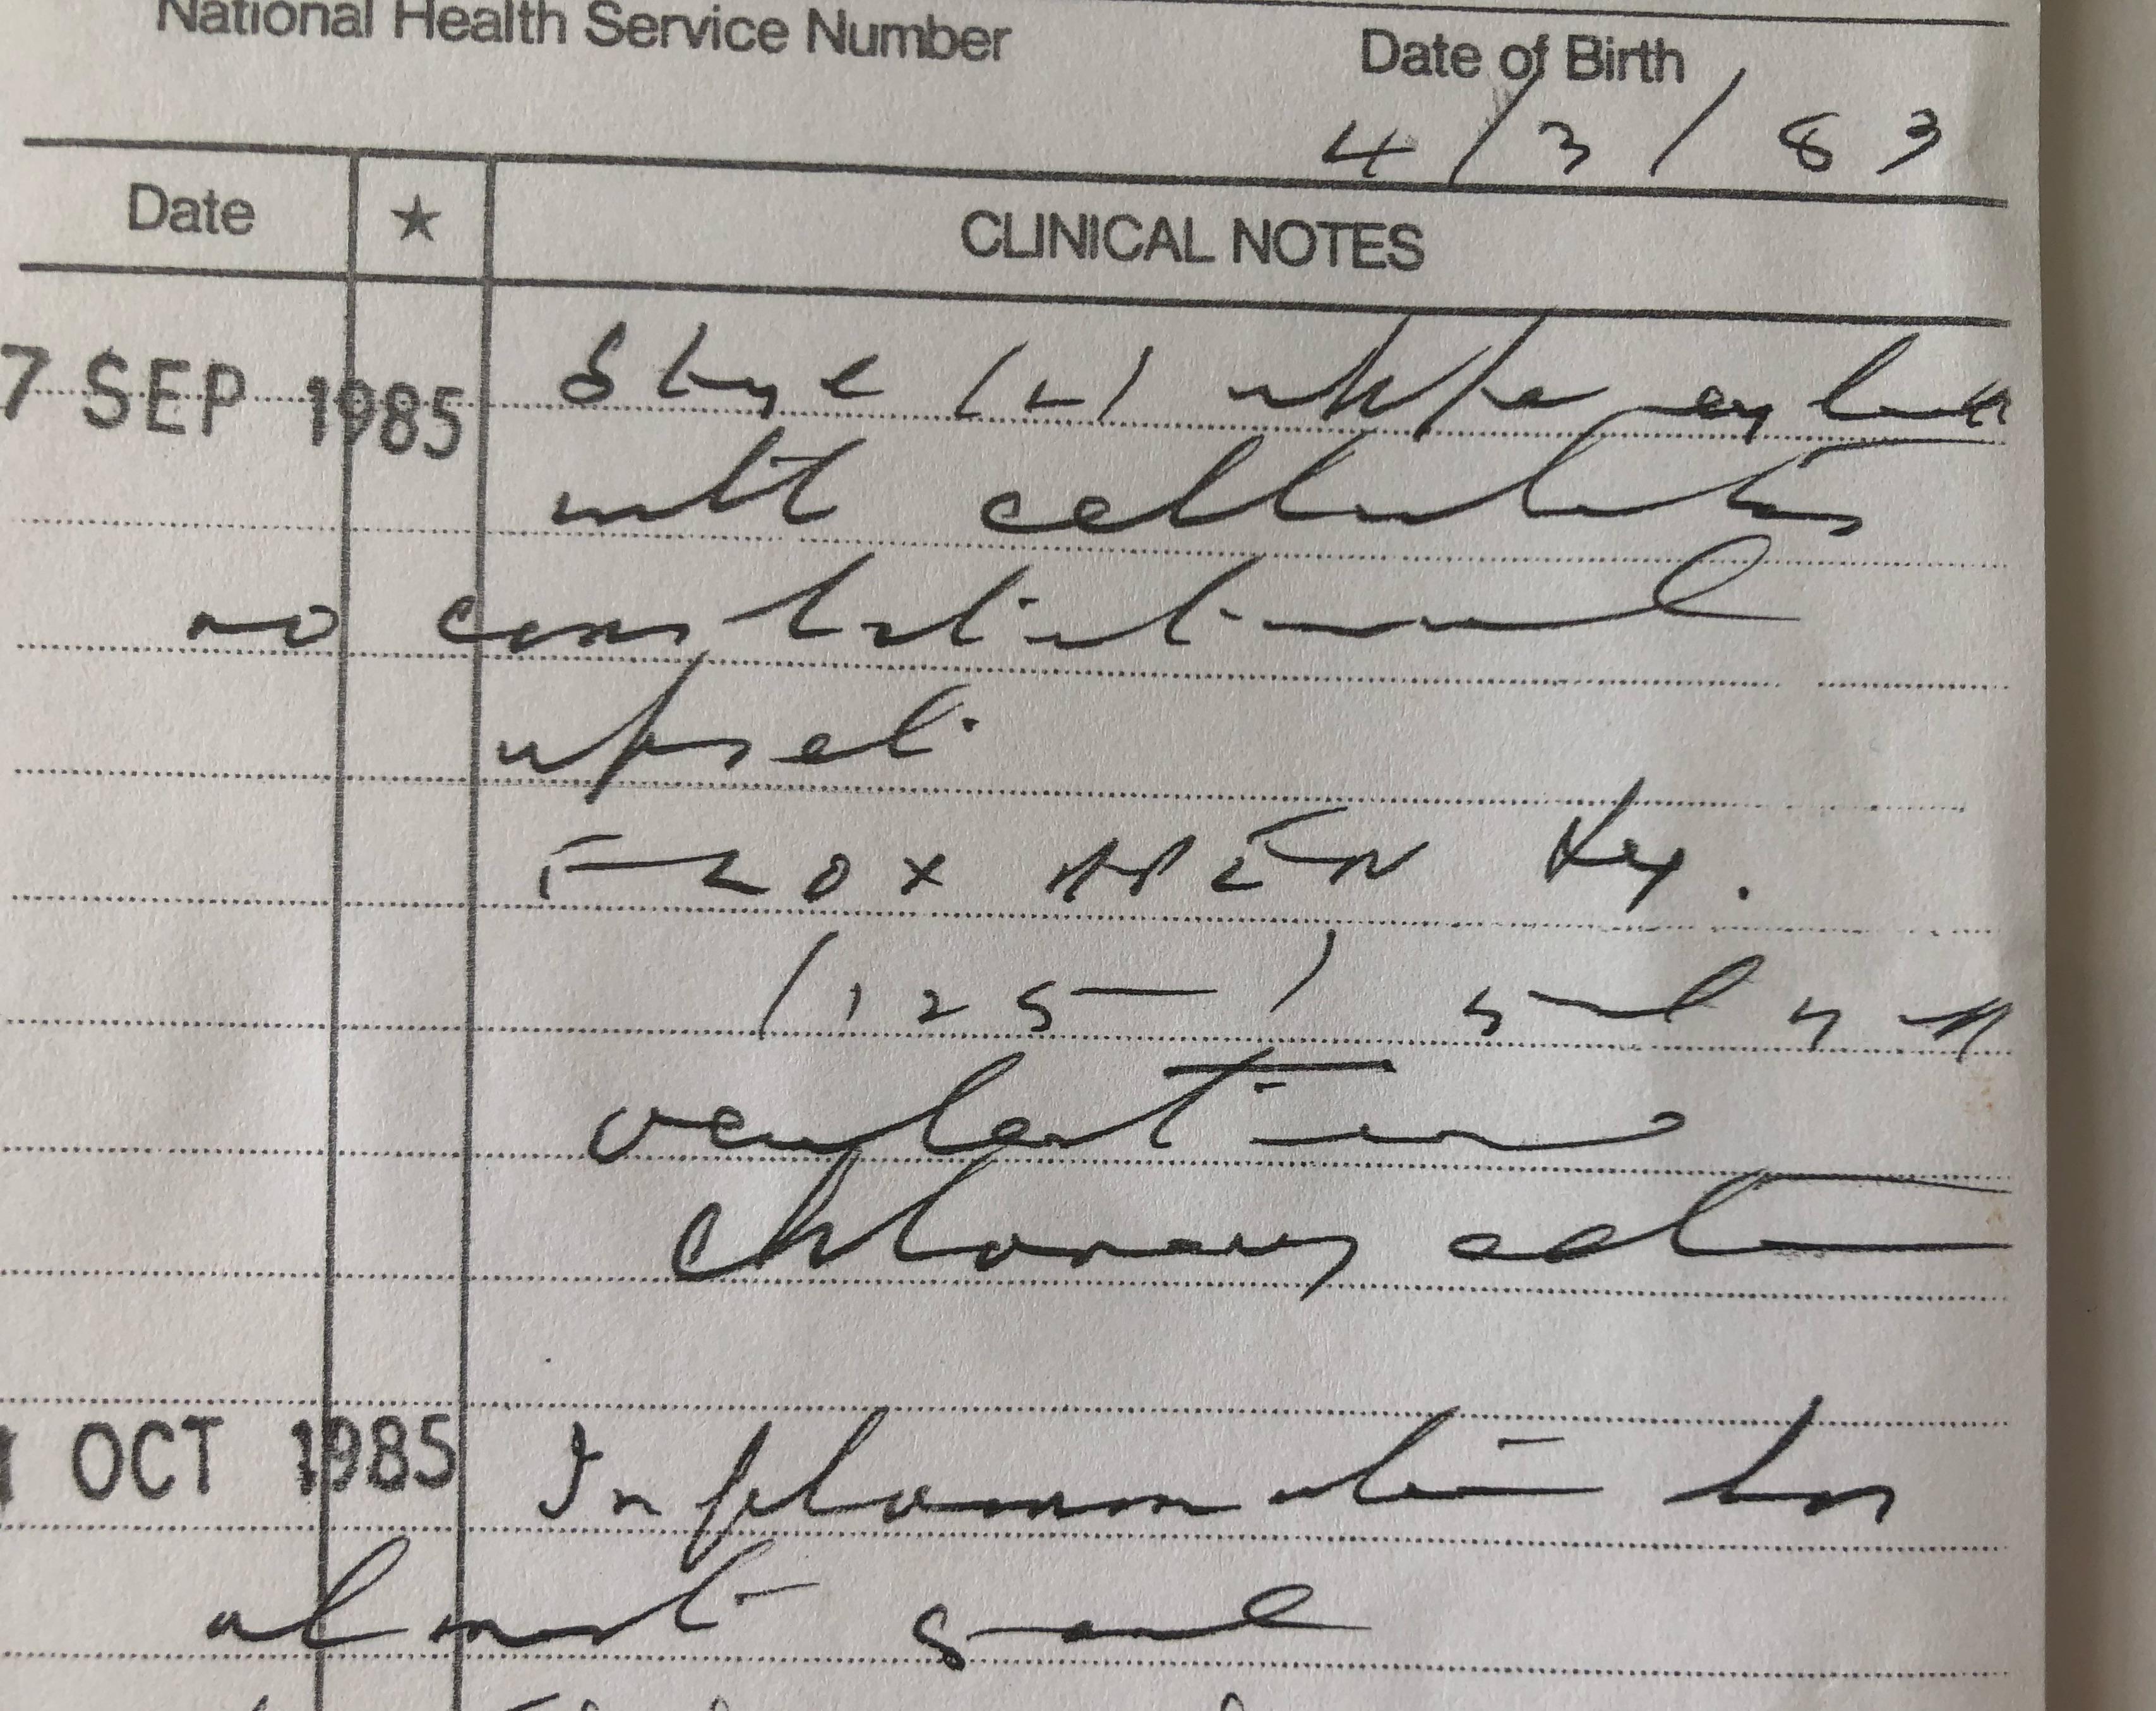 National Health Service Number
Date of Birth
4/3/83
Date ★ CLINICAL NOTES
7 SEP 1985 Stye (L) upper eyelid
with cellulitis
no constitutional
upset.
FLOXAPEN
(125) 5ml
Chloromycetin
1 OCT 1985 Inflammation has
almost gone